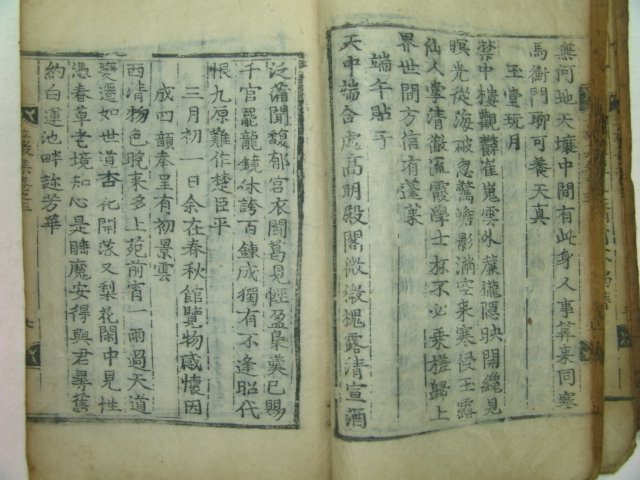 無何地天壤中間有此身人事筭來同塞
馬衡門聊可養天真
玉堂玩月
禁中樓觀鬱崔嵬雲外簾櫳隱映開纔見
暝光從海破忽驚蟾影滿空來寒侵玉露
仙人掌清徹流霞學士杯不必乘槎歸上
界世間方信有蓬萊
端午貼子
天中端合處高明殿閣微微槐露清宣酒
泛蒲聞馥郁宮衣鬪葛見輕盈梟羹已賜
千官罷龍鏡休誇百鍊成獨有不逢昭代
恨九原難作楚臣平
三月初一日余在春秋館覽物感懷因
成四韻奉呈有初景雲
西清物色晩來多上苑前宵一雨過天道
變遷如世道杏花開落又梨花閑中見性
憑春草老境知心是睡魔安得與君尋舊
約白蓮池畔詠芳華
七